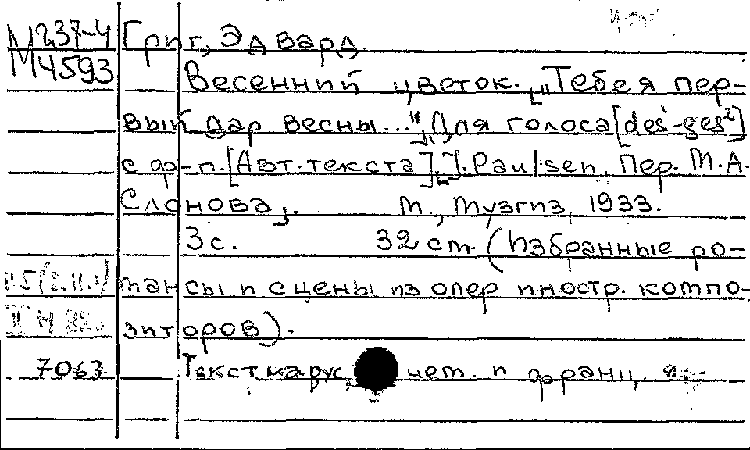 М237-4 Григ, Эдвард.
М4593 Весенний цветок. ["Тебе я пер-
вый дар весны..."] Для голоса [des¹-ges²]
с ф-п. [Авт. текста] J. Paulsen, пер. М.А.
Слонова. М., Музгиз, 1933.
3 с. 32 см. (Избранные ро-
мансы и сцены из опер иностр. компо-
зиторов).
7063 Текст на рус., нем. и франц. я